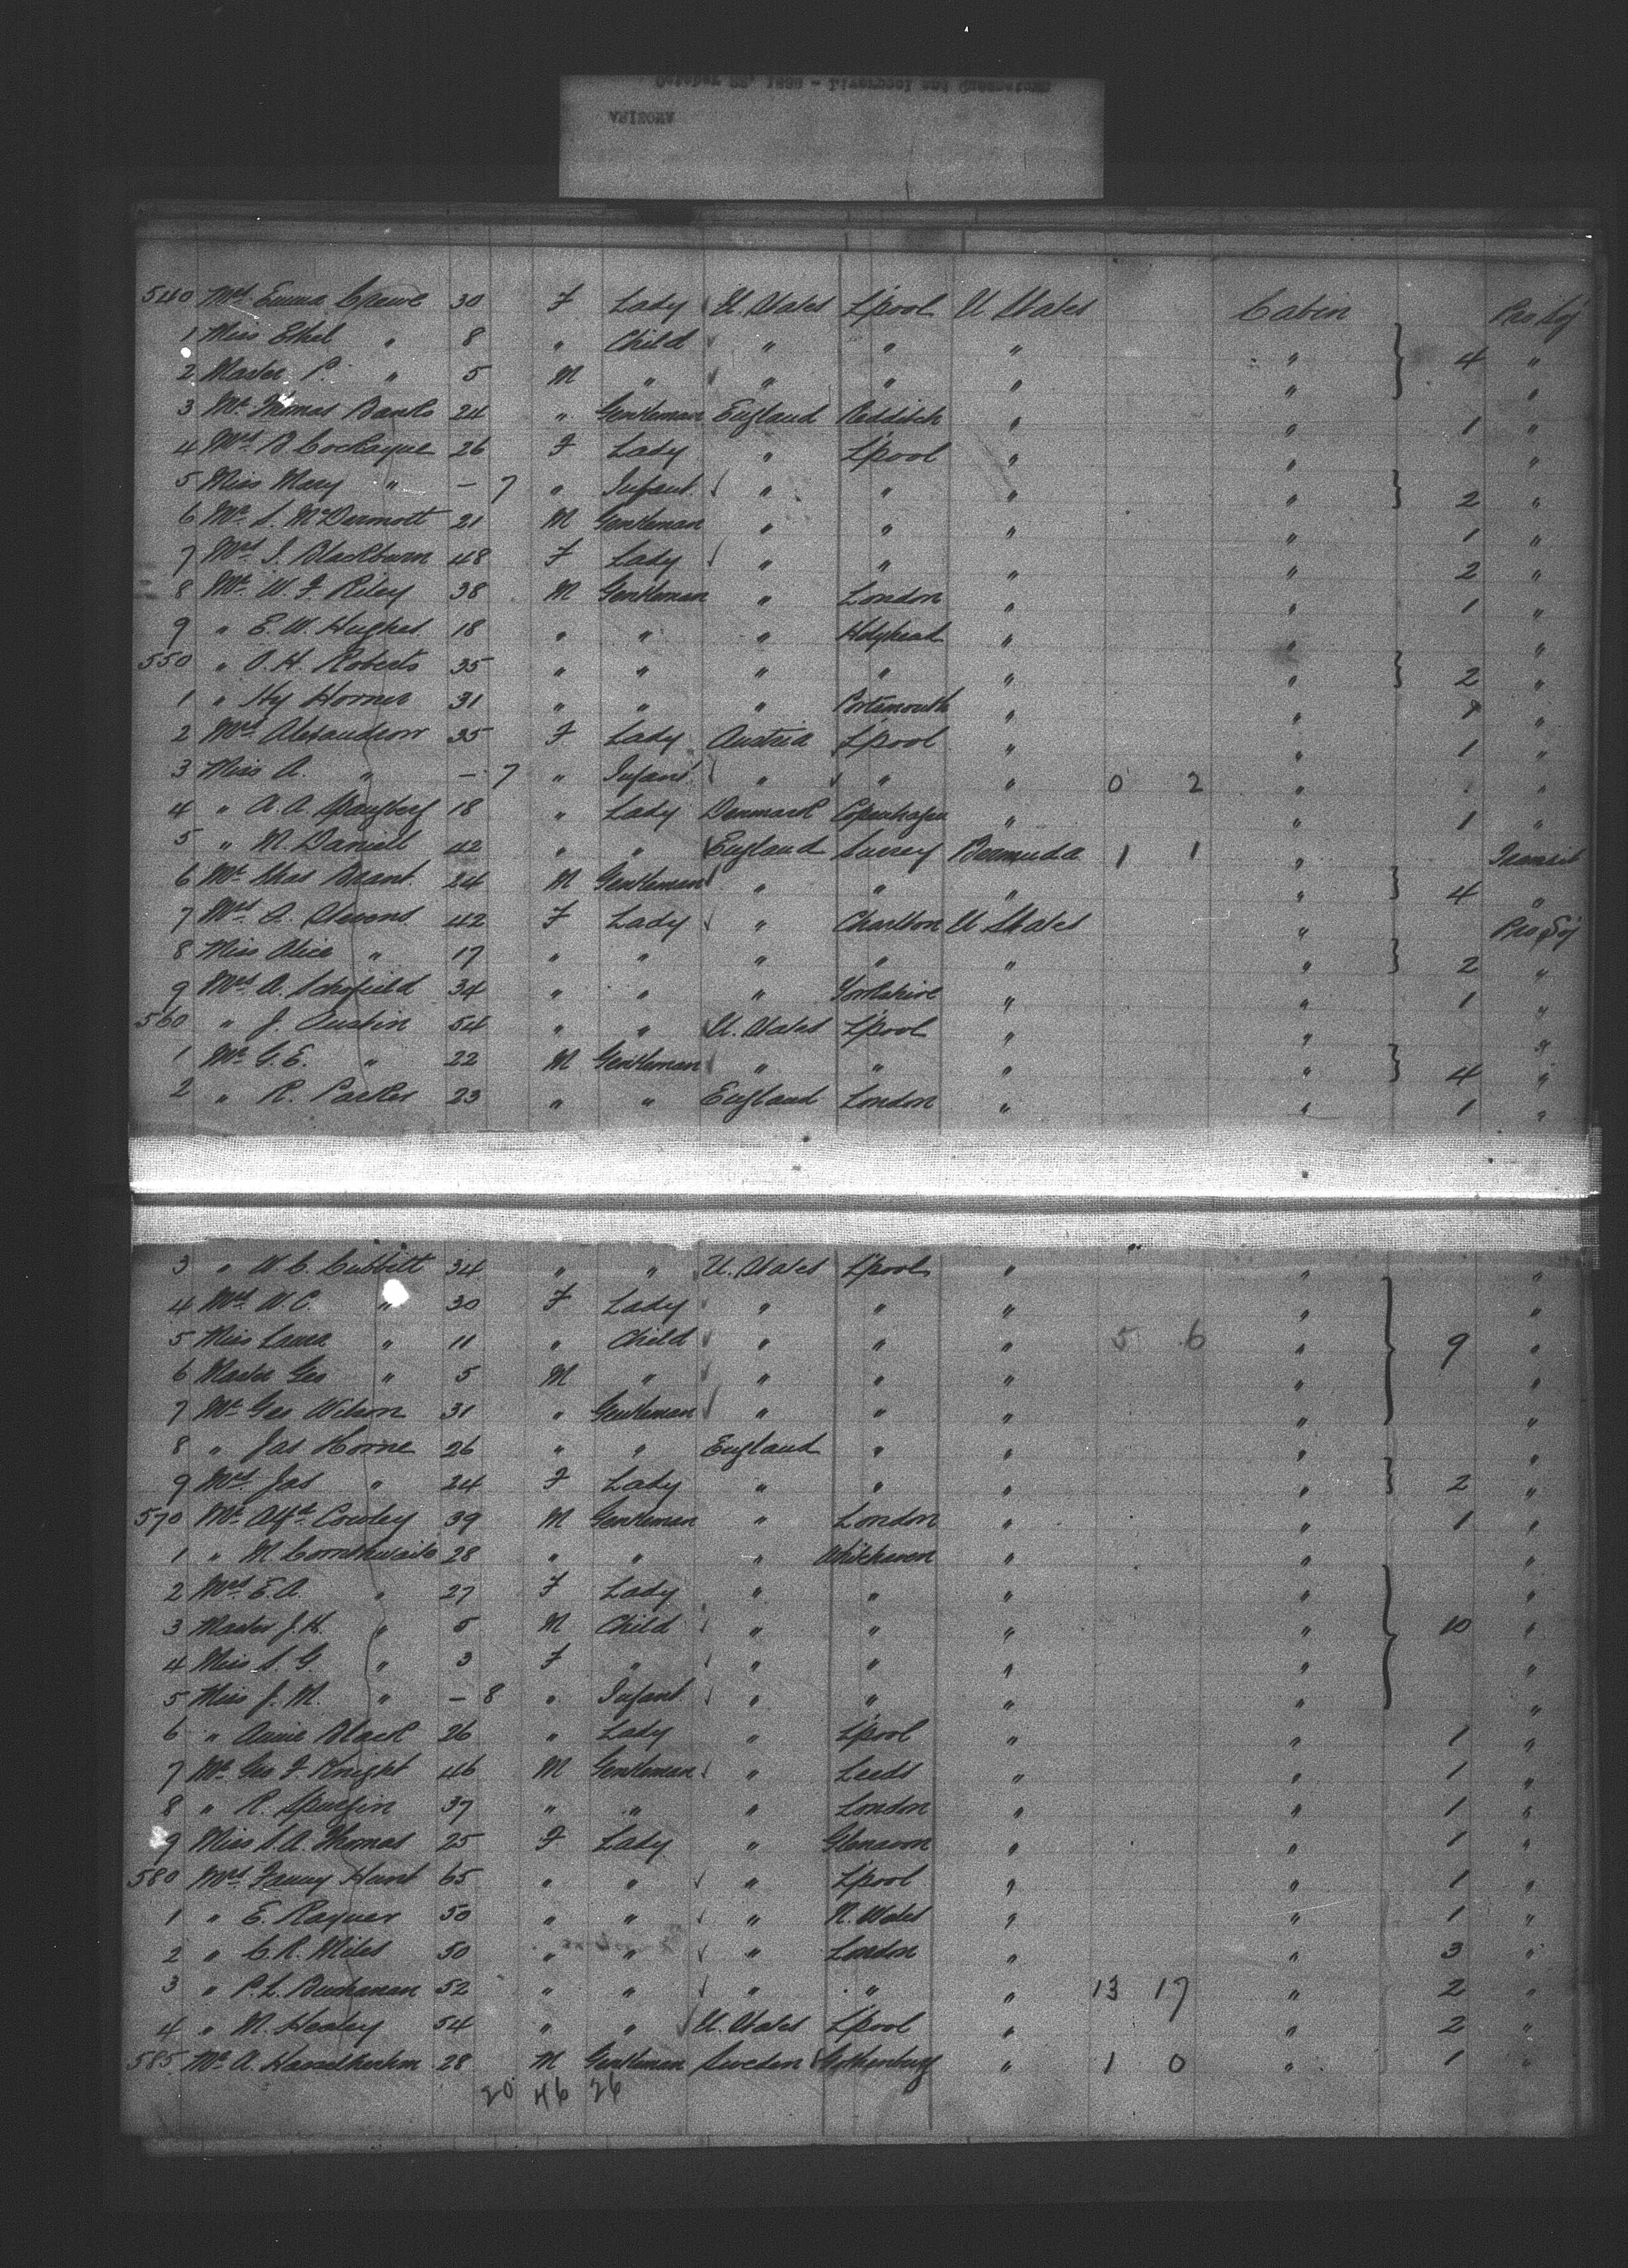 ARIZONA
October 28, 1889 - Liverpool and Queenstown
540 Mrs Emma Crewe 30 F Lady U. States L'pool U States Cabin Pro Soj
1 Miss Ethel " 8 " Child " " " " "
2 Master P. " 5 M " " " " " 4 "
3 Mr Thomas Banks 24 " Gentleman England Redditch " " 1 "
4 Mrs B Cockayne 26 F Lady " L'pool " " "
5 Miss Mary " - 7 " Infant " " " " 2 "
6 Mr S. McDermott 21 M Gentleman " " " " 1 "
7 Mrs J. Blackburn 48 F Lady " " " " 2 "
8 Mr W. F. Riley 38 M Gentleman " London " " 1 "
9 " E. W. Hughes 18 " " " Holyhead " " "
550 " O. H. Roberts 35 " " " " " " 2 "
1 " Hy Horner 31 " " " Portsmouth " " 1 "
2 Mrs Alexandrow 35 F Lady Austria L'pool " " 1 "
3 Miss A. " - 7 " Infant " " " 0 2 " "
4 " A. A. 18 " Lady Denmark Copenhagen " " 1 "
5 " N. Daniell 42 " " England Surrey Bermuda 1 1 " Transit
6 Mr Chas Brant 24 M Gentleman " " " " 4 "
7 Mrs A. Stevens 42 F Lady " Charlton U States " Pro Soj
8 Miss Alice " 17 " " " " " " 2 "
9 Mrs A. Schofield 34 " " " Yorkshire " " 1 "
560 " J. Austin 54 " " U. States L'pool " " "
1 Mr G. E. " 22 M Gentleman " " " " 4 "
2 " R. Parker 23 " " England London " " 1 "
3 " W. C. Cubbitt 34 " " U. States L'pool " " "
4 Mrs W. C. " 30 F Lady " " " " "
5 Miss Laura " 11 " Child " " " 5 6 " 9 "
6 Master Geo " 5 M " " " " " "
7 Mr Geo Wilson 31 " Gentleman " " " " "
8 " Jas Horne 26 " " England " " " "
9 Mrs Jas " 24 F Lady " " " " 2 "
570 Mr Alfd Cowley 39 M Gentleman " London " " 1 "
1 " M Cornthwaite 28 " " " Whitehaven " " "
2 Mrs E. A. " 27 F Lady " " " " "
3 Master J. H. " 5 M Child " " " " 10 "
4 Miss S. G. " 3 F " " " " " "
5 Miss J. M. " - 8 " Infant " " " " "
6 " Annie Black 26 " Lady " L'pool " " 1 "
7 Mr Geo F. Knight 46 M Gentleman " Leeds " " 1 "
8 " R. Spurgin 37 " " " London " " 1 "
9 Miss S. A. Thomas 25 F Lady " Glenavon " " 1 "
580 Mrs Fanny Hunt 65 " " " L'pool " " 1 "
1 " E. Rayner 50 " " " N. Wales " " 1 "
2 " C. R. Miles 50 " " " London " " 3 "
3 " P. L. Buchanan 52 " " " " " 13 17 " 2 "
4 " M. Healey 54 " " U. States L'pool " " 2 "
585 Mr A. 28 M Gentleman Sweden Gothenburg " 1 0 " 1 "
20 46 26